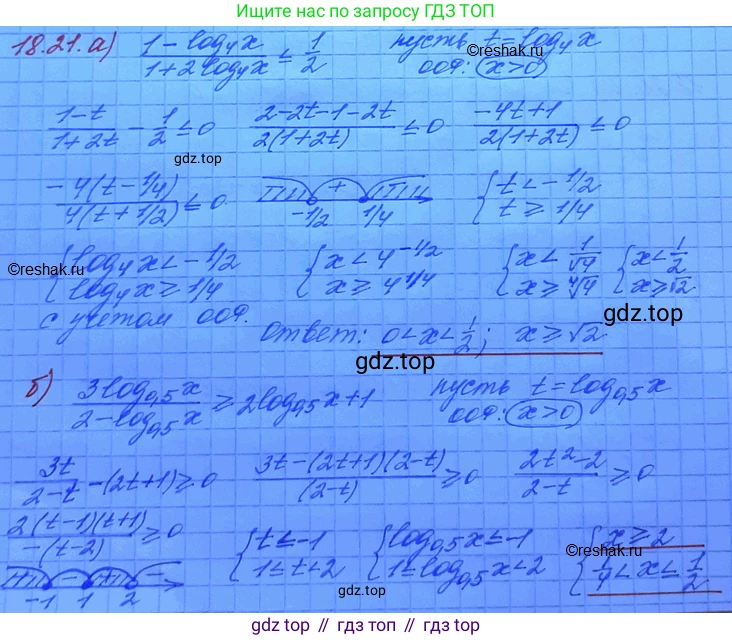 Ищите нас по запросу ГДЗ ТОП
18.21. а) (1-log₄x)/(1+2log₄x) ≤ 1/2 пусть t=log₄x
©reshak.ru
ООФ: x>0
(1-t)/(1+2t) - 1/2 ≤ 0 (2-2t-1-2t)/(2(1+2t)) ≤ 0 (-4t+1)/(2(1+2t)) ≤ 0
gdz.top
(-4(t-1/4))/(4(t+1/2)) ≤ 0 + -1/2 1/4 { t<-1/2 t≥1/4
©reshak.ru
{ log₄x<-1/2 log₄x≥1/4 { x<4^(-1/2) x≥4^(1/4) { x<1/√4 x≥⁴√4 { x<1/2 x≥√2
gdz.top
с учётом ООФ.
Ответ: 0<x<1/2; x≥√2
gdz.top
б) (3log₀,₅x)/(2-log₀,₅x) ≥ 2log₀,₅x+1 пусть t=log₀,₅x
©reshak.ru
ООФ: x>0
3t/(2-t) -(2t+1)≥0 (3t-(2t+1)(2-t))/(2-t) ≥0 (2t²-2)/(2-t) ≥0
(2(t-1)(t+1))/(-(t-2)) ≥0 { t≤-1 1≤t<2 { log₀,₅x≤-1 1≤log₀,₅x<2 { x≥2 1/4<x≤1/2
©reshak.ru
- - -1 1 2
gdz.top
gdz.top // гдз топ // gdz.top